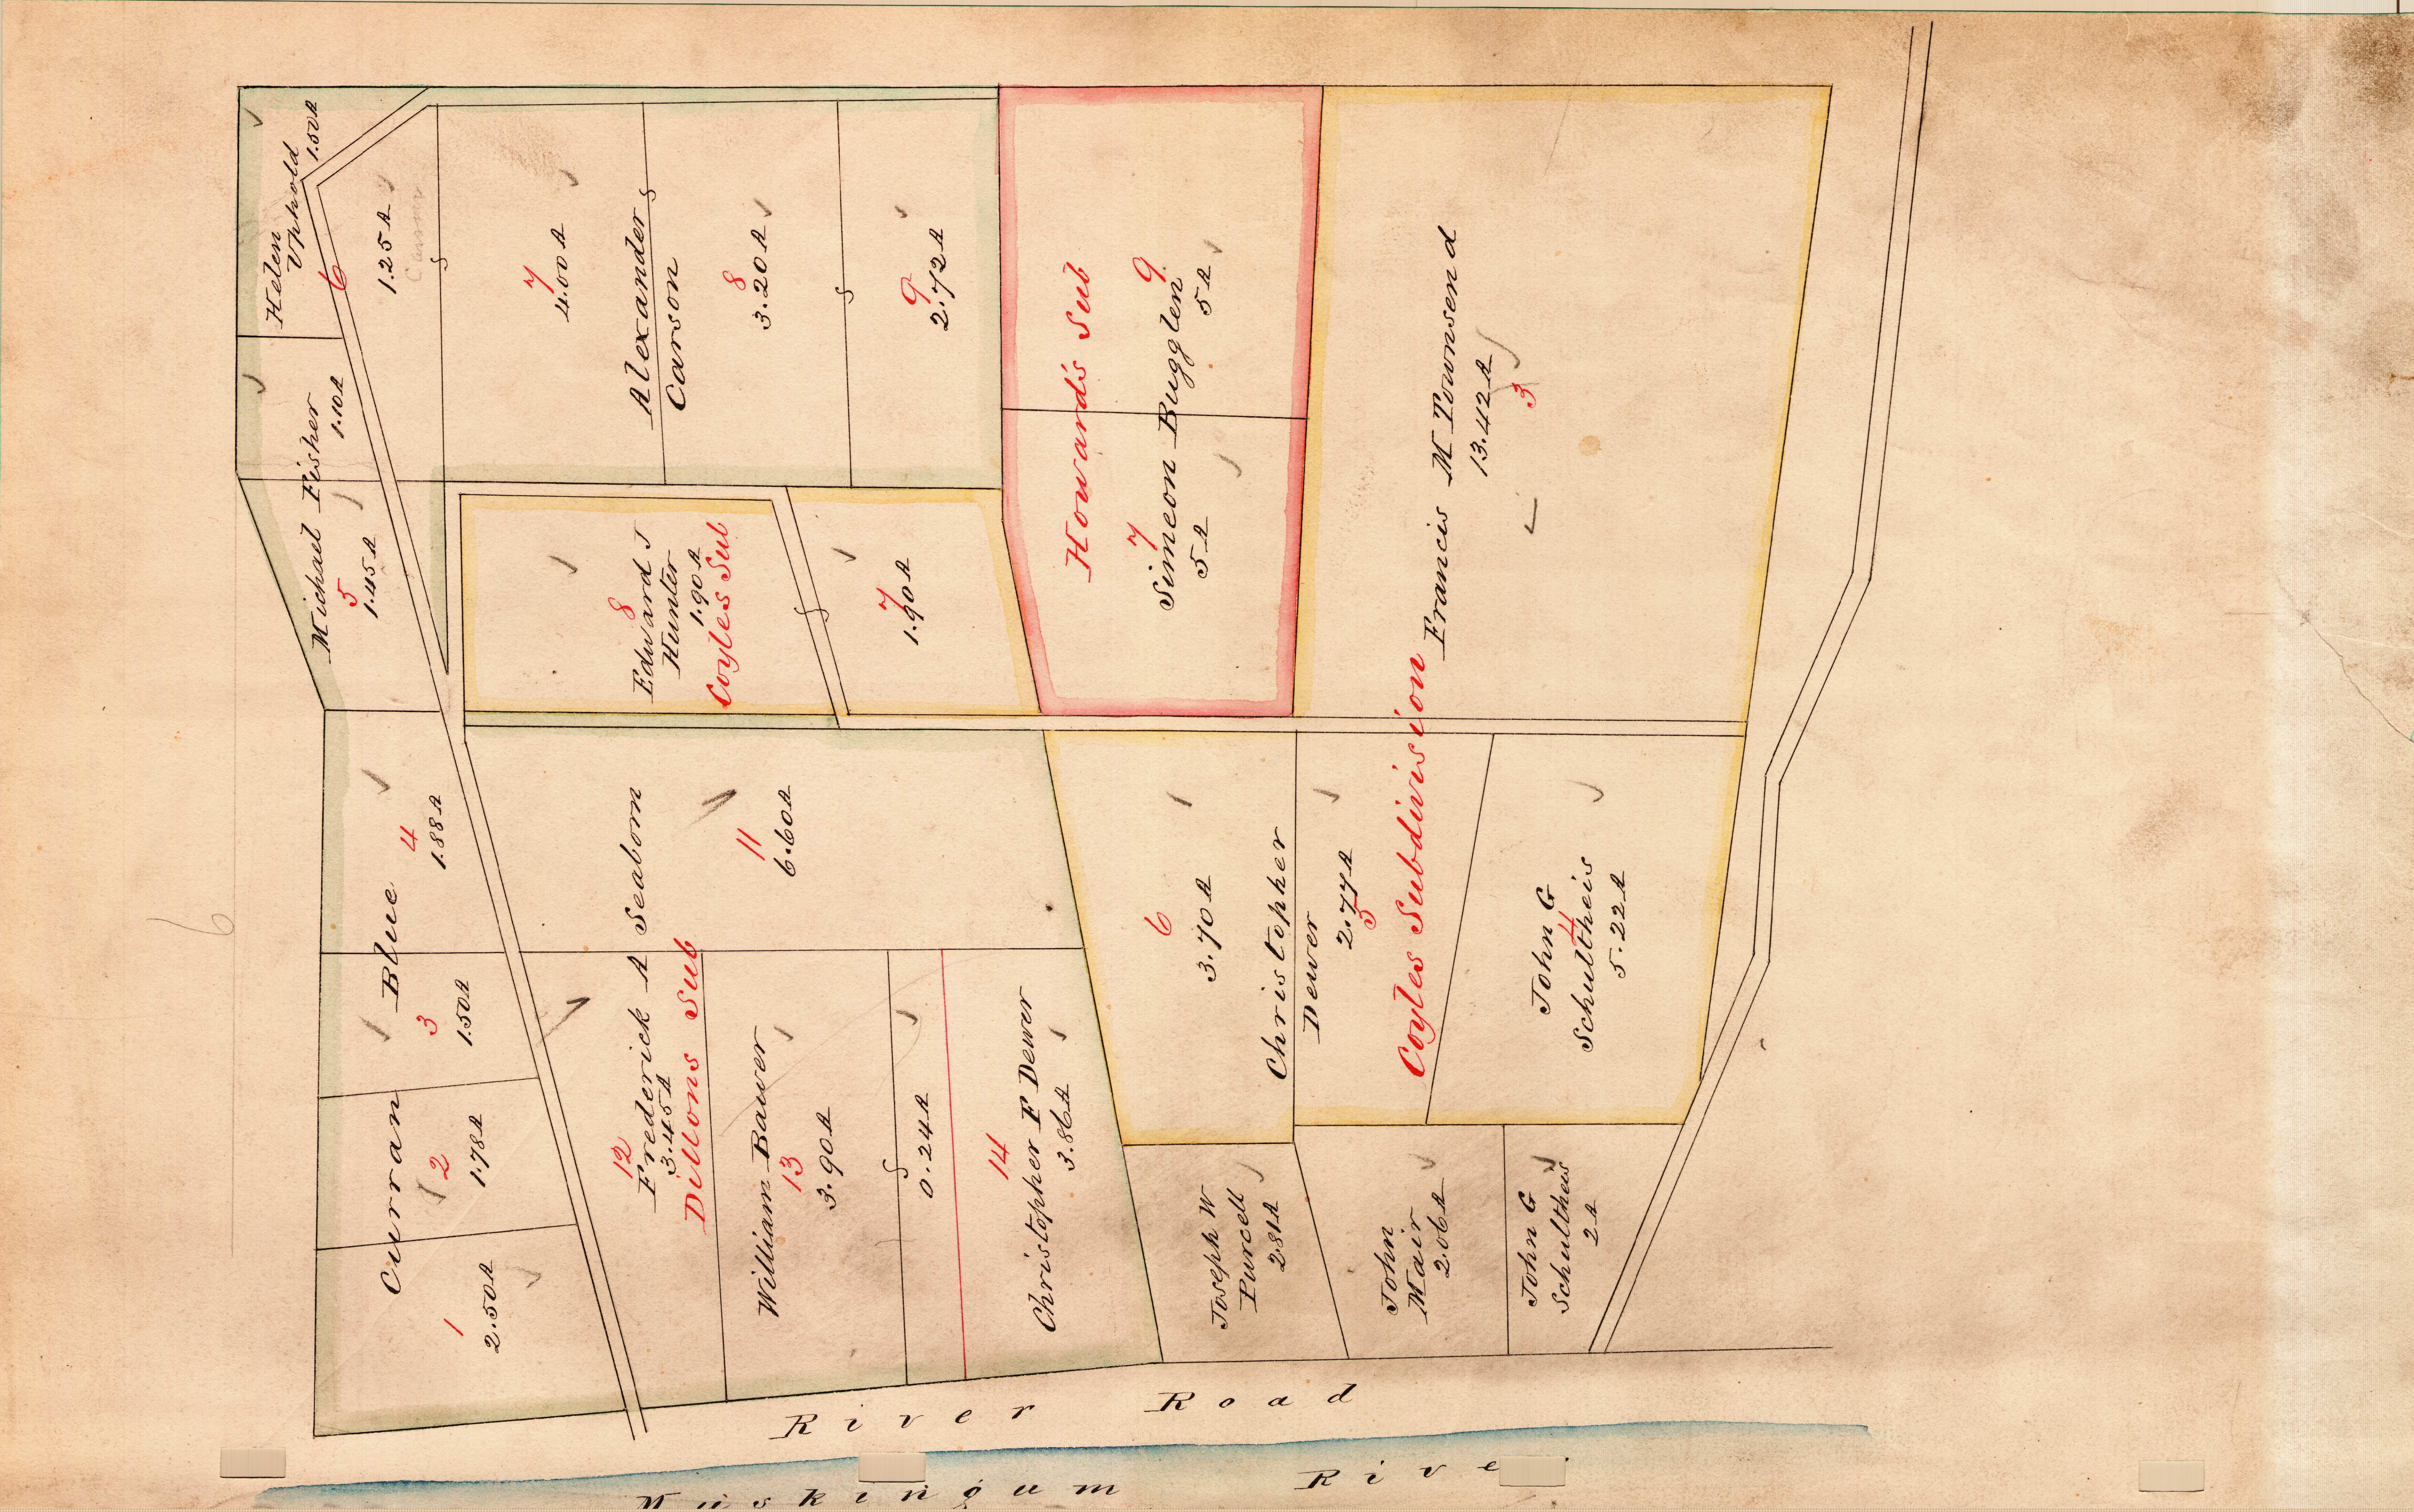 Helen
Uphold
1.50A
6
1.25A
Michael Fisher
1.10A
5
1.45A
7
4.00A
Alexander
Carson
8
3.20A
9
2.72A
8
Edward J
Hunter
1.90A
Coyles Sub
7
1.90A
Howards Sub
Simeon Bugglen
9
5A
7
5A
Francis M Townsend
13.42A
3
Curran Blue
4
1.88A
3
1.50A
2
1.78A
1
2.50A
11
6.60A
Frederick A Seaborn
12
3.45A
Dillons Sub
William Bauer
13
3.90A
0.24A
14
Christopher F Dewer
3.86A
6
3.70A
Christopher
Dewer
2.77A
5
Coyles Subdivision
John G
Schultheis
4
5.22A
Joseph W
Purcell
2.81A
John
Mair
2.06A
John G
Schultheis
2A
6
River Road
Muskingum